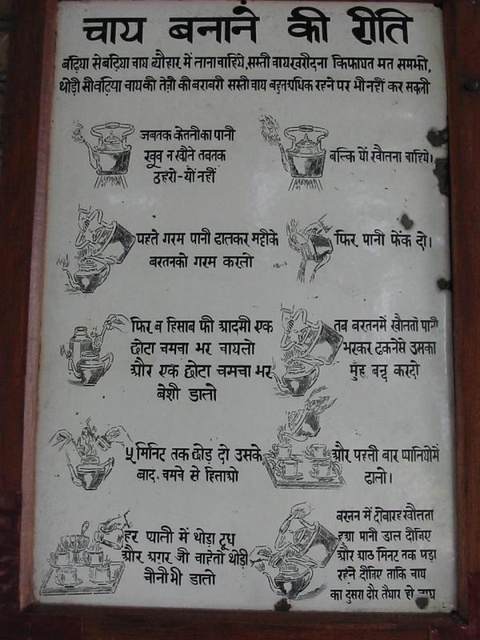 चाय बनाने की रीति
बढ़िया से बढ़िया चाय व्यौहार में लाना चाहिये, सस्ती चाय खरीदना किफ़ायत मत समझो,
थोड़ी सी बढ़िया चाय की तेज़ी की बराबरी सस्ती चाय बहुत अधिक रहने पर भी नहीं कर सकती
जबतक केतली का पानी
खूब न खौले तबतक
ठहरो-यों नहीं
बल्कि यों खौलना चाहिये।
पहले गरम पानी ढालकर मट्टी के
बरतन को गरम करलो
फिर पानी फेंक दो।
फिर ब हिसाब फ़ी आदमी एक
छोटा चमचा भर चाय लो
और एक छोटा चमचा भर
बेशी डालो
तब बरतन में खौलता पानी
भरकर ढकने से उसका
मुँह बन्द करदो
५ मिनिट तक छोड़ दो उसके
बाद. चमचे से हिलाओ
और पहली बार प्यालियों में
ढालो।
हर प्याली में थोड़ा दूध
और अगर जी चाहे तो थोड़ी
चीनी भी डालो
बरतन में दोबारह खौलता
हुआ पानी डाल दीजिए
और आठ मिनट तक पड़ा
रहने दीजिए ताकि चाय
का दुसरा दौर तैयार हो जाय